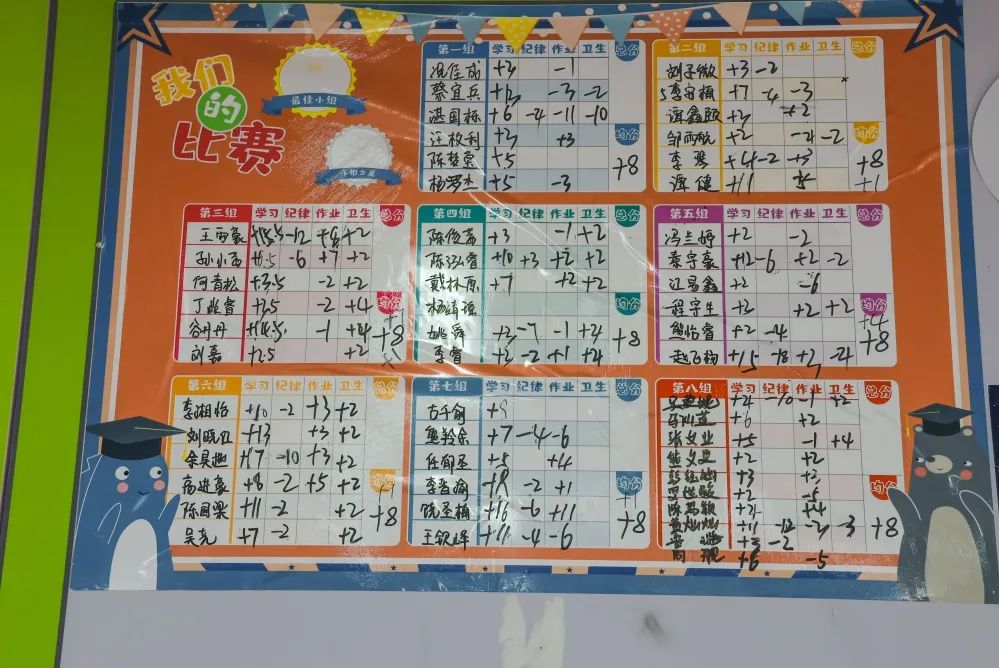 我们的比赛
最佳小组
第一组 学习 纪律 作业 卫生 总分
+3 -1
蔡宜兵 +12 -3 -2
湛国栋 +6 -4 -11 -10
汪枚利 +3 +3
陈楚东 +5
杨罗杰 +5 -3
均分
+8
第二组 学习 纪律 作业 卫生 总分
刘子微 +3 -2
+7 -4 -3
谭鑫颐 +2 +2
邹雨航 +2 -2 -2
李梦 +4 -2 +3
谭健 +11
均分
+8
+1
第三组 学习 纪律 作业 卫生 总分
王雨豪 -12 +2
孙小西 -6 +7 +2
何青松 +3.5 -2 +2
+2.5 -2 +4
谷丹丹 -1 +4
刘嘉 +2.5 +2
均分
+8
第四组 学习 纪律 作业 卫生 总分
陈俊嘉 +3 -1 +2
陈泓睿 +10 +3 +2 +2
戴林原 +7 +2 +2
杨靖瑶
姚 +3 -7 -1 +4
李睿 +2 -2 +1 +4
均分
+8
第五组 学习 纪律 作业 卫生 总分
冯兰婷 +2 -2
秦宇豪 +12 -6 +2 -2
江易鑫 +2 -6
程宇生 +2 +2 +2
熊怡睿 +2 -4
赵飞杨 +15 -18 +2 -4
均分
+4
+8
第六组 学习 纪律 作业 卫生 总分
李湘怡 +10 -2 +3 +2
刘晓红 +13 +3 +2
余昊 +7 -10 +3 +2
高进豪 +8 -2 +5 +2
陈国梁 +11 -2 +2
吴亮 +7 -2 +2
均分
+8
第七组 学习 纪律 作业 卫生 总分
古千俞
熊羚余 +7 -4 -6
任郁丞 +5 +4
李晋瑜 -2 +1
饶圣楠 +16 -6 +11
王钦峰 +11 -4 -6
均分
+8
第八组 学习 纪律 作业 卫生 总分
+4 -10 -1 +2
+6 +2
张文业 +5 -1 +4
熊文昱 +2 +2
+3 +3
+2 -5
+4
黄灿灿 +11 -12 -2 -3
+3 -2
周 +6 -5
均分
+8